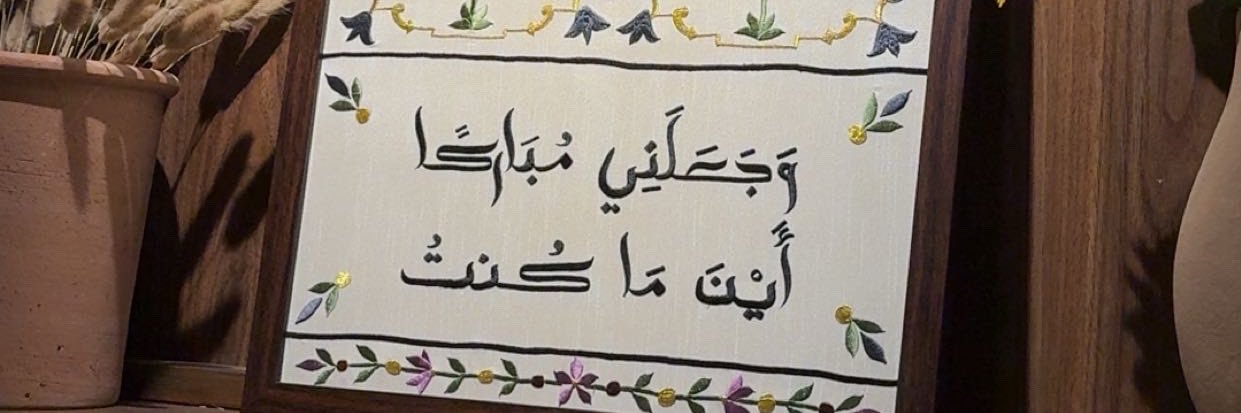 وَجَعَلَنِي مُبَارَكًا
أَيْنَ مَا كُنتُ